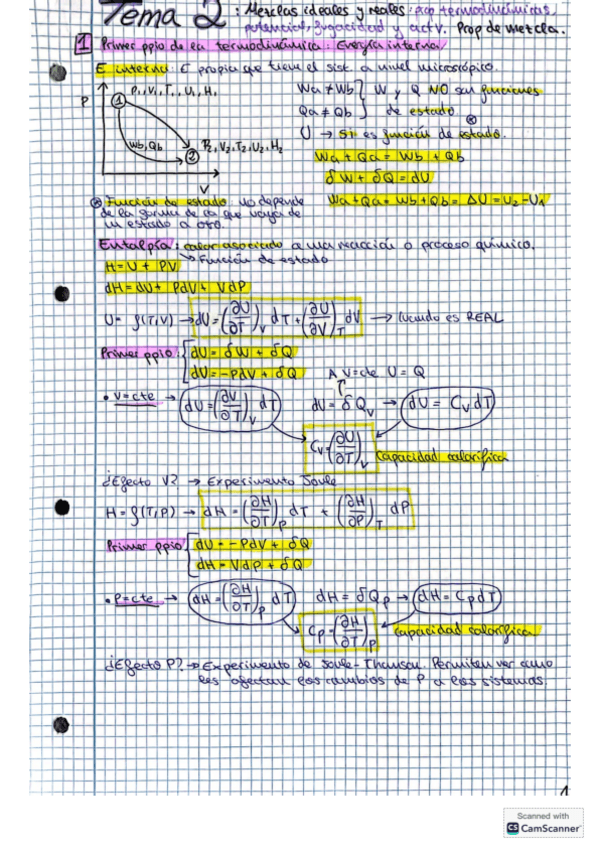 Tema 2: Mezclas ideales y reales: prop termodinámicas,
potencial, fugacidad y activ. Prop de mezcla.
1 Primer ppio de la termodinámica: Energía interna
E interna: E propia que tiene el sist. a nivel microscópico.
P
1 P₁, V₁, T₁, U₁, H₁
Wb, Qb
2 P₂, V₂, T₂, U₂, H₂
V
Wa ≠ Wb } W y Q NO son funciones
Qa ≠ Qb } de estado
U → SI es función de estado.
Wa + Qa = Wb + Qb
δW + δQ = dU
Wa + Qa = Wb + Qb = ΔU = U₂ - U₁
* Función de estado: no depende
de la forma de la que vaya de
un estado a otro.
Entalpía: calor asociado a una reacción o proceso químico.
↳ Función de estado
H = U + PV
dH = dU + PdV + VdP
U = f(T,V) → dU = (∂U/∂T)V dT + (∂U/∂V)T dV → cuando es REAL
Primer ppio { dU = δW + δQ
dU = -PdV + δQ
A V=cte U = Q
• V=cte → dU = (∂U/∂T)V dT dU = δQV → dU = CvdT
Cv = (∂U/∂T)V Capacidad calorífica
¿Efecto V? → Experimento Joule
H = f(T,P) → dH = (∂H/∂T)P dT + (∂H/∂P)T dP
Primer ppio { dU = -PdV + δQ
dH = VdP + δQ
• P=cte → dH = (∂H/∂T)P dT dH = δQp → dH = CpdT
Cp = (∂H/∂T)P Capacidad calorífica
¿Efecto P? → Experimento de Joule-Thomson. Permiten ver como
les afectan los cambios de P a los sistemas.
1
Scanned with
CS CamScanner